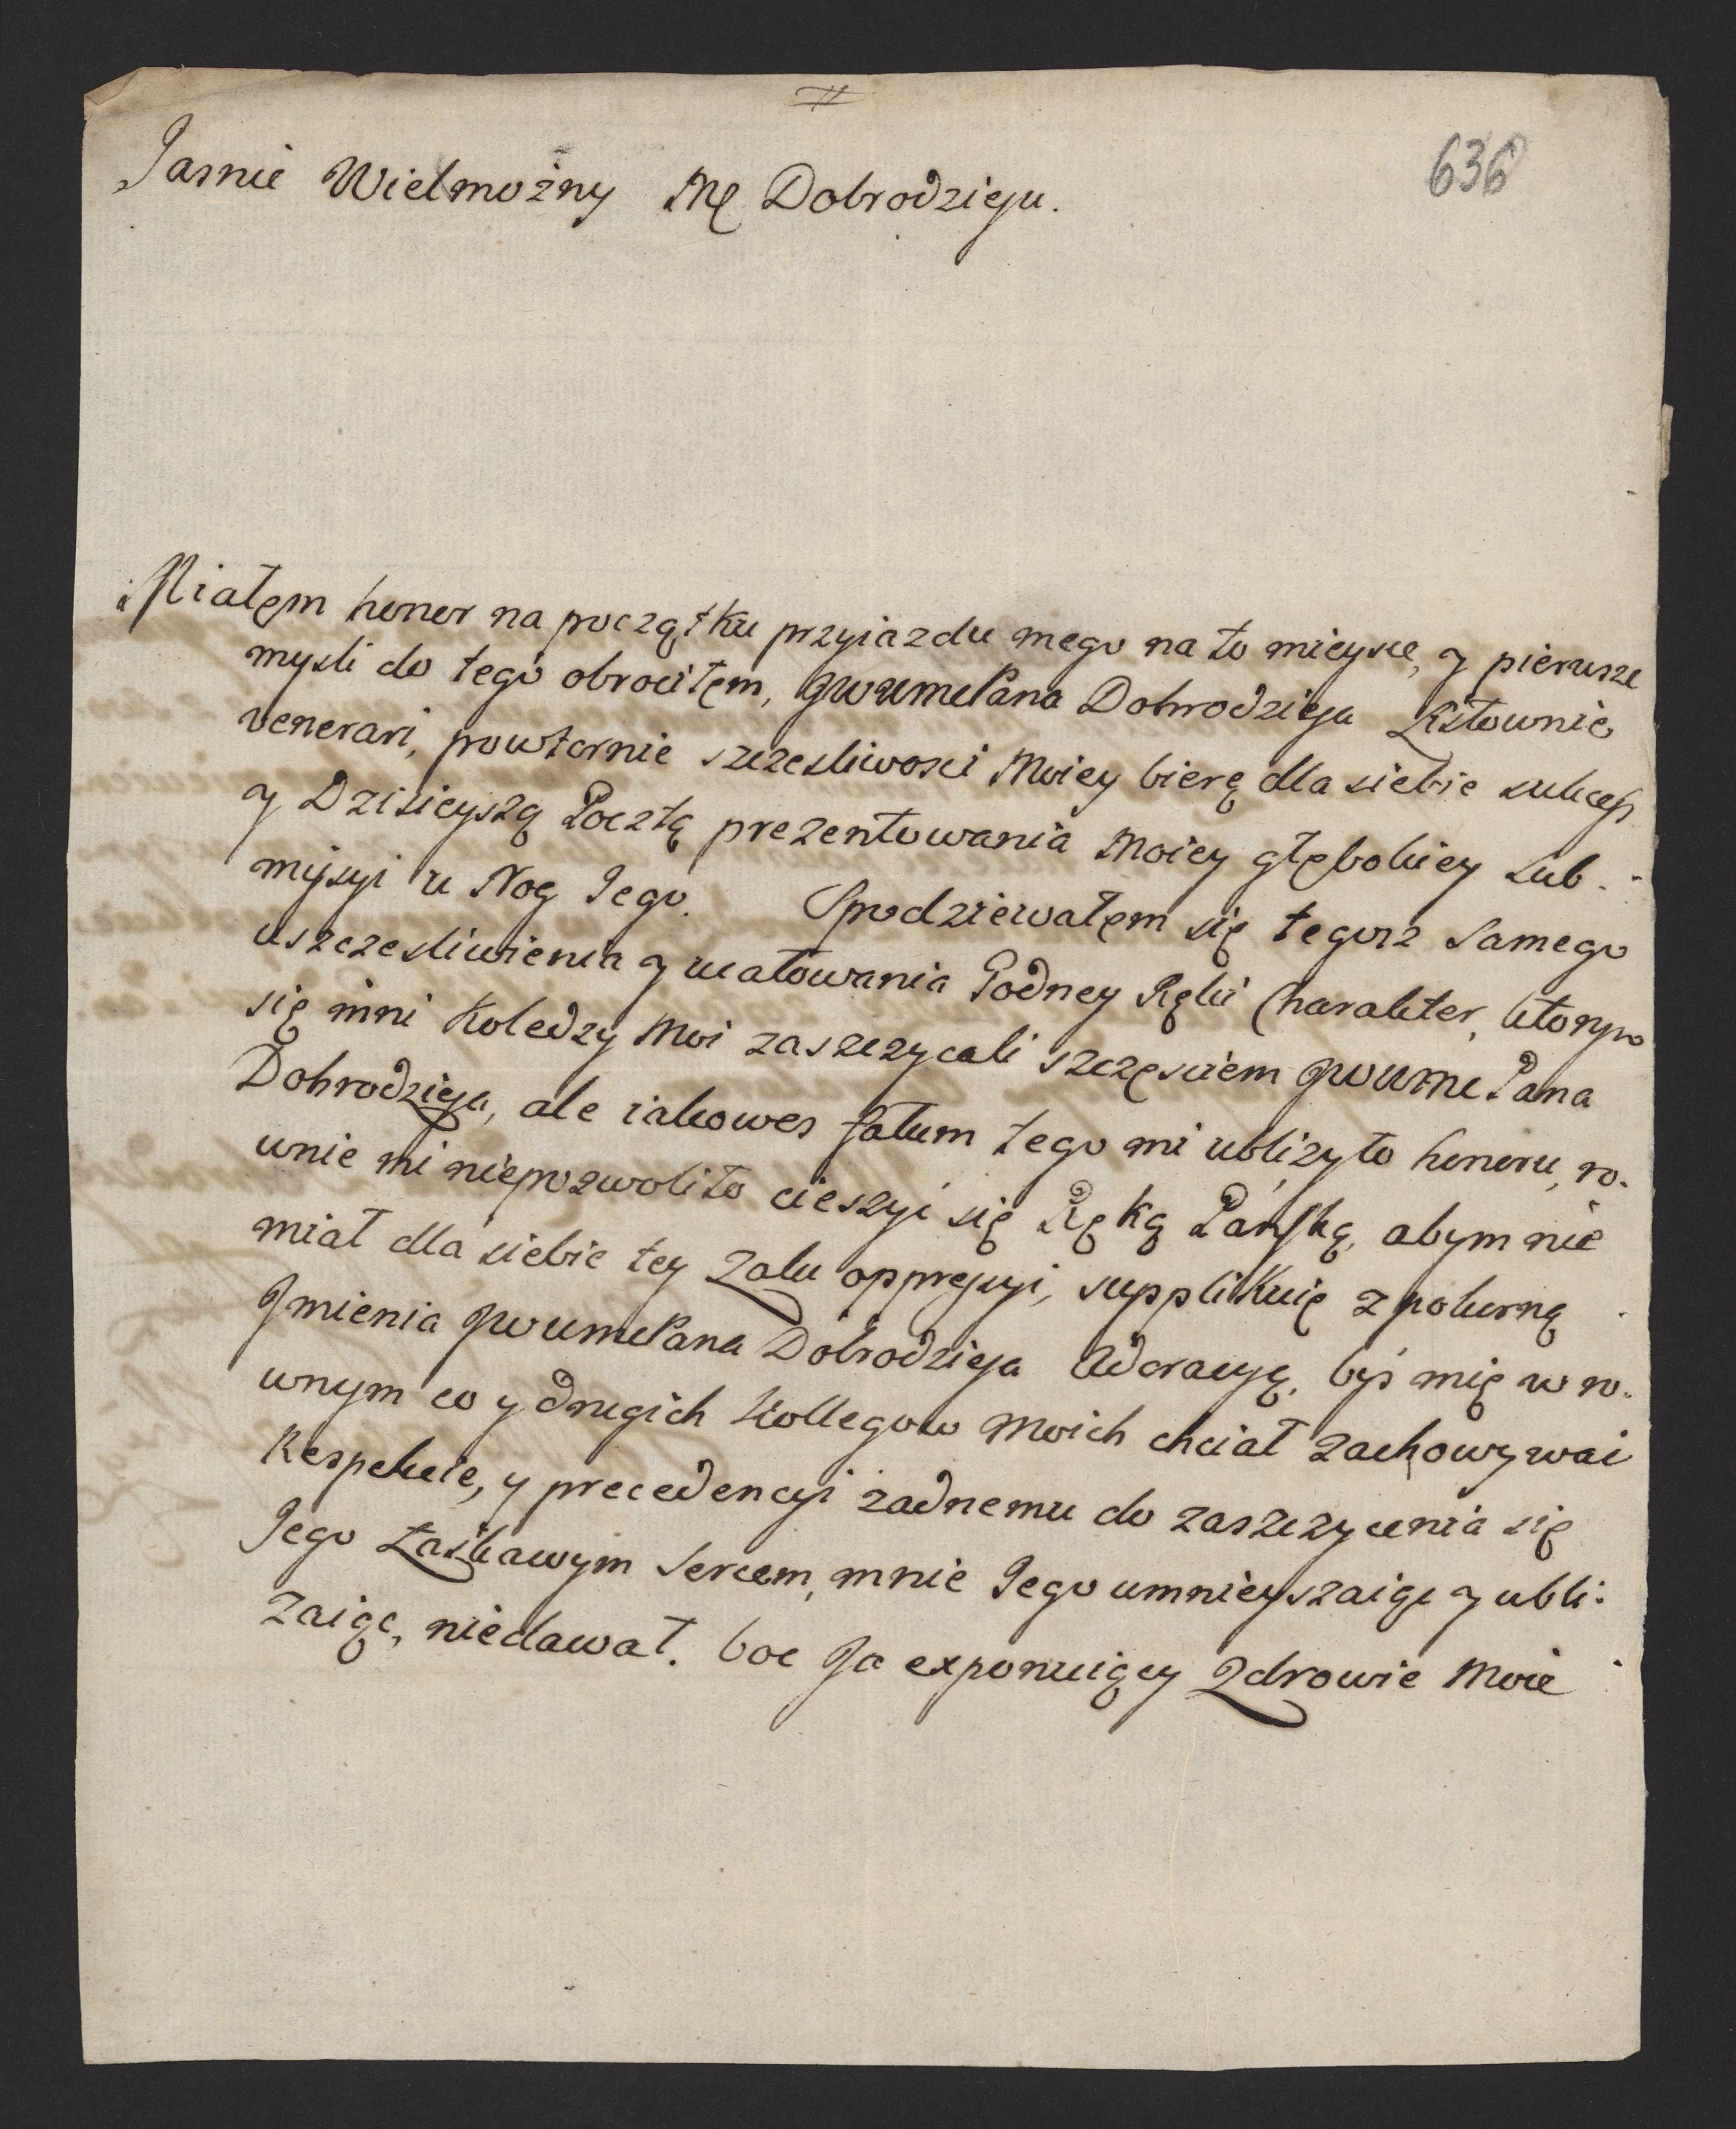 636
Jasnie Wielmożny Mę Dobrodzieju.
Miałęm honor na początku przyiazdu mego na to mieysce, y pierwsze
mysli do tego obrociłęm, JWWMePana Dobrodzieja Listownie
venerari, powtornie szczesliwosci Moiey bierę dla siebie sukcess
y Dzisieyszą Pocztą prezentowania Moiey głębokiey sub-
missyi u Nog Jego. Spodziewałęm się tegosz Samego
uszczesliwienia y ucałowania Godney Ręki Charakter, ktorym
się inni Koledzy Moi zaszczycali szczęsciem JWWMePana
Dobrodzieja, ale iakowes fatum tego mi ubliżyło honoru, ro-
wnie mi niepozwoliło cieszyć się Ręką Pańską, abym nie
miał dla siebie tey Żalu oppressyi, supplikuię z pokorną
Jmienia JWWMePana Dobrodzieja Adoracyą, byś mię w ro-
wnym co y drugich Kollegow Moich chciał zachowywać
Respekcie, y precedencyi żadnemu do zaszczycenia się
Jego Łaskawym Sercem, mnie Jego umnieyszaiąc y ubli-
żaiąc, niedawał. boć Ja exponuiący Zdrowie Moie